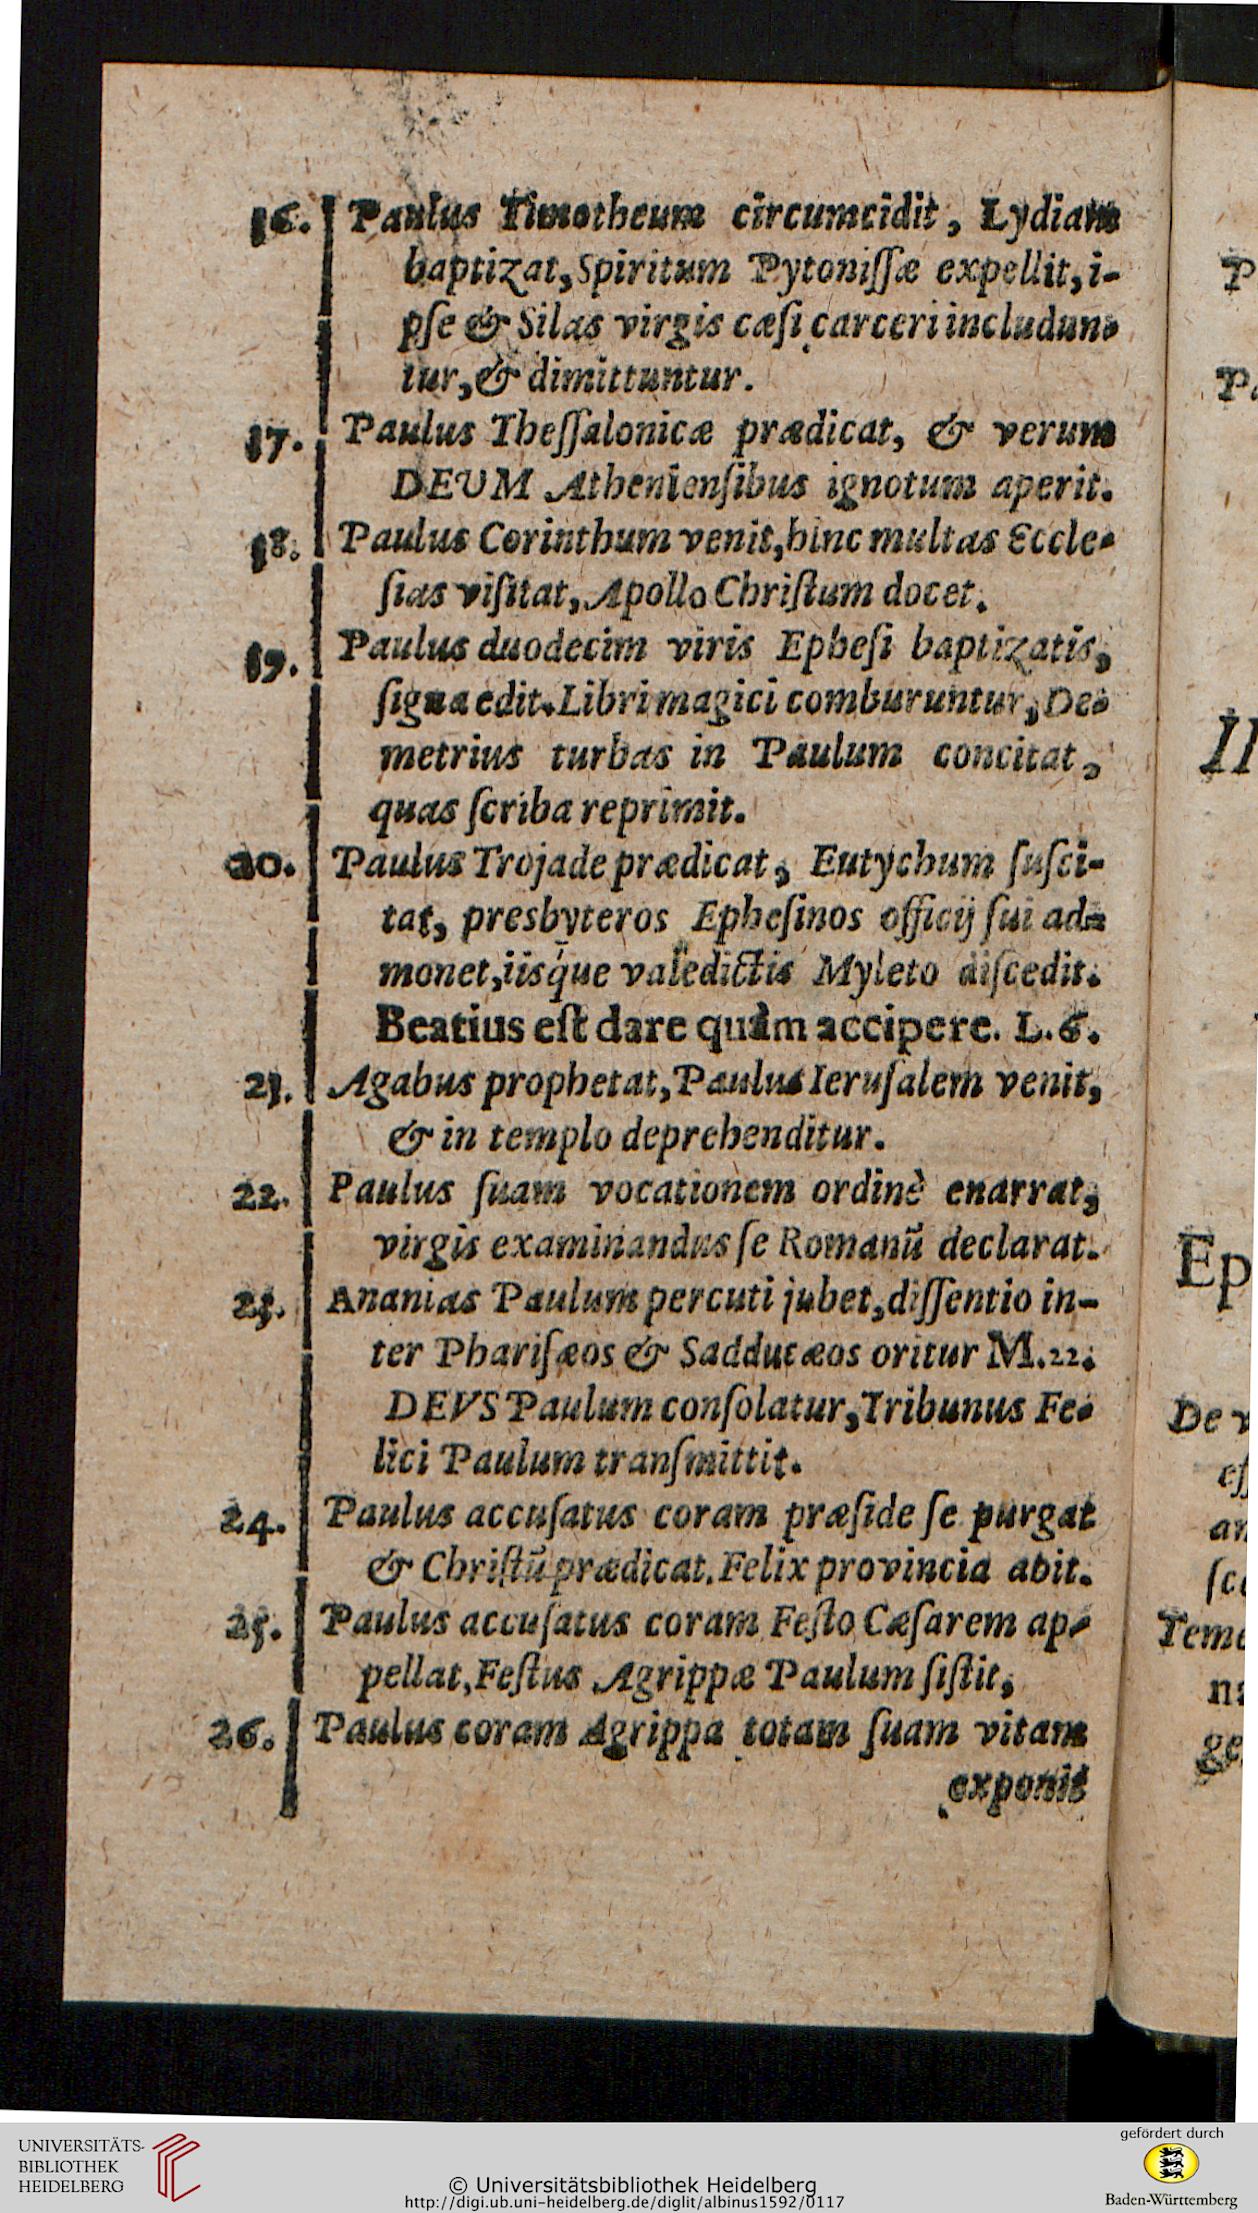 16. Paulus Timotheum circumcidit, Lydiam
baptizat, Spiritum Pytoniſſæ expellit, i-
pſe & Silas virgis cæſi carceri includun-
tur, & dimittuntur.
17. Paulus Theſſalonicæ prædicat, & verum
DEUM Athenienſibus ignotum aperit.
18. Paulus Corinthum venit, hinc multas Eccle-
ſias viſitat, Apollo Chriſtum docet.
19. Paulus duodecim viris Epheſi baptizatis,
ſigna edit. Libri magici comburuntur, De-
metrius turbas in Paulum concitat,
quas ſcriba reprimit.
20. Paulus Trojade prædicat, Eutychum ſuſci-
tat, presbyteros Epheſinos officij ſui ad-
monet, iisq́ue valedictis Myleto diſcedit.
Beatius eſt dare quàm accipere. L. 6.
21. Agabus prophetat, Paulus Ieruſalem venit,
& in templo deprehenditur.
22. Paulus ſuam vocationem ordinè enarrat,
virgis examinandus ſe Romanū declarat.
23. Ananias Paulum percuti jubet, diſſentio in-
ter Phariſæos & Sadducæos oritur M. 22.
DEVS Paulum conſolatur, Tribunus Fe-
lici Paulum tranſmittit.
24. Paulus accuſatus coram præſide ſe purgat
& Chriſtū prædicat. Felix provincia abit.
25. Paulus accuſatus coram Feſto Cæſarem ap-
pellat, Feſtus Agrippæ Paulum ſiſtit,
26. Paulus coram Agrippa totam ſuam vitam
exponit
P
Il
Ep
De v
eſ
ſc
ge
UNIVERSITÄTS-
BIBLIOTHEK
HEIDELBERG
© Universitätsbibliothek Heidelberg
http://digi.ub.uni-heidelberg.de/diglit/albinus1592/0117
gefördert durch
Baden-Württemberg